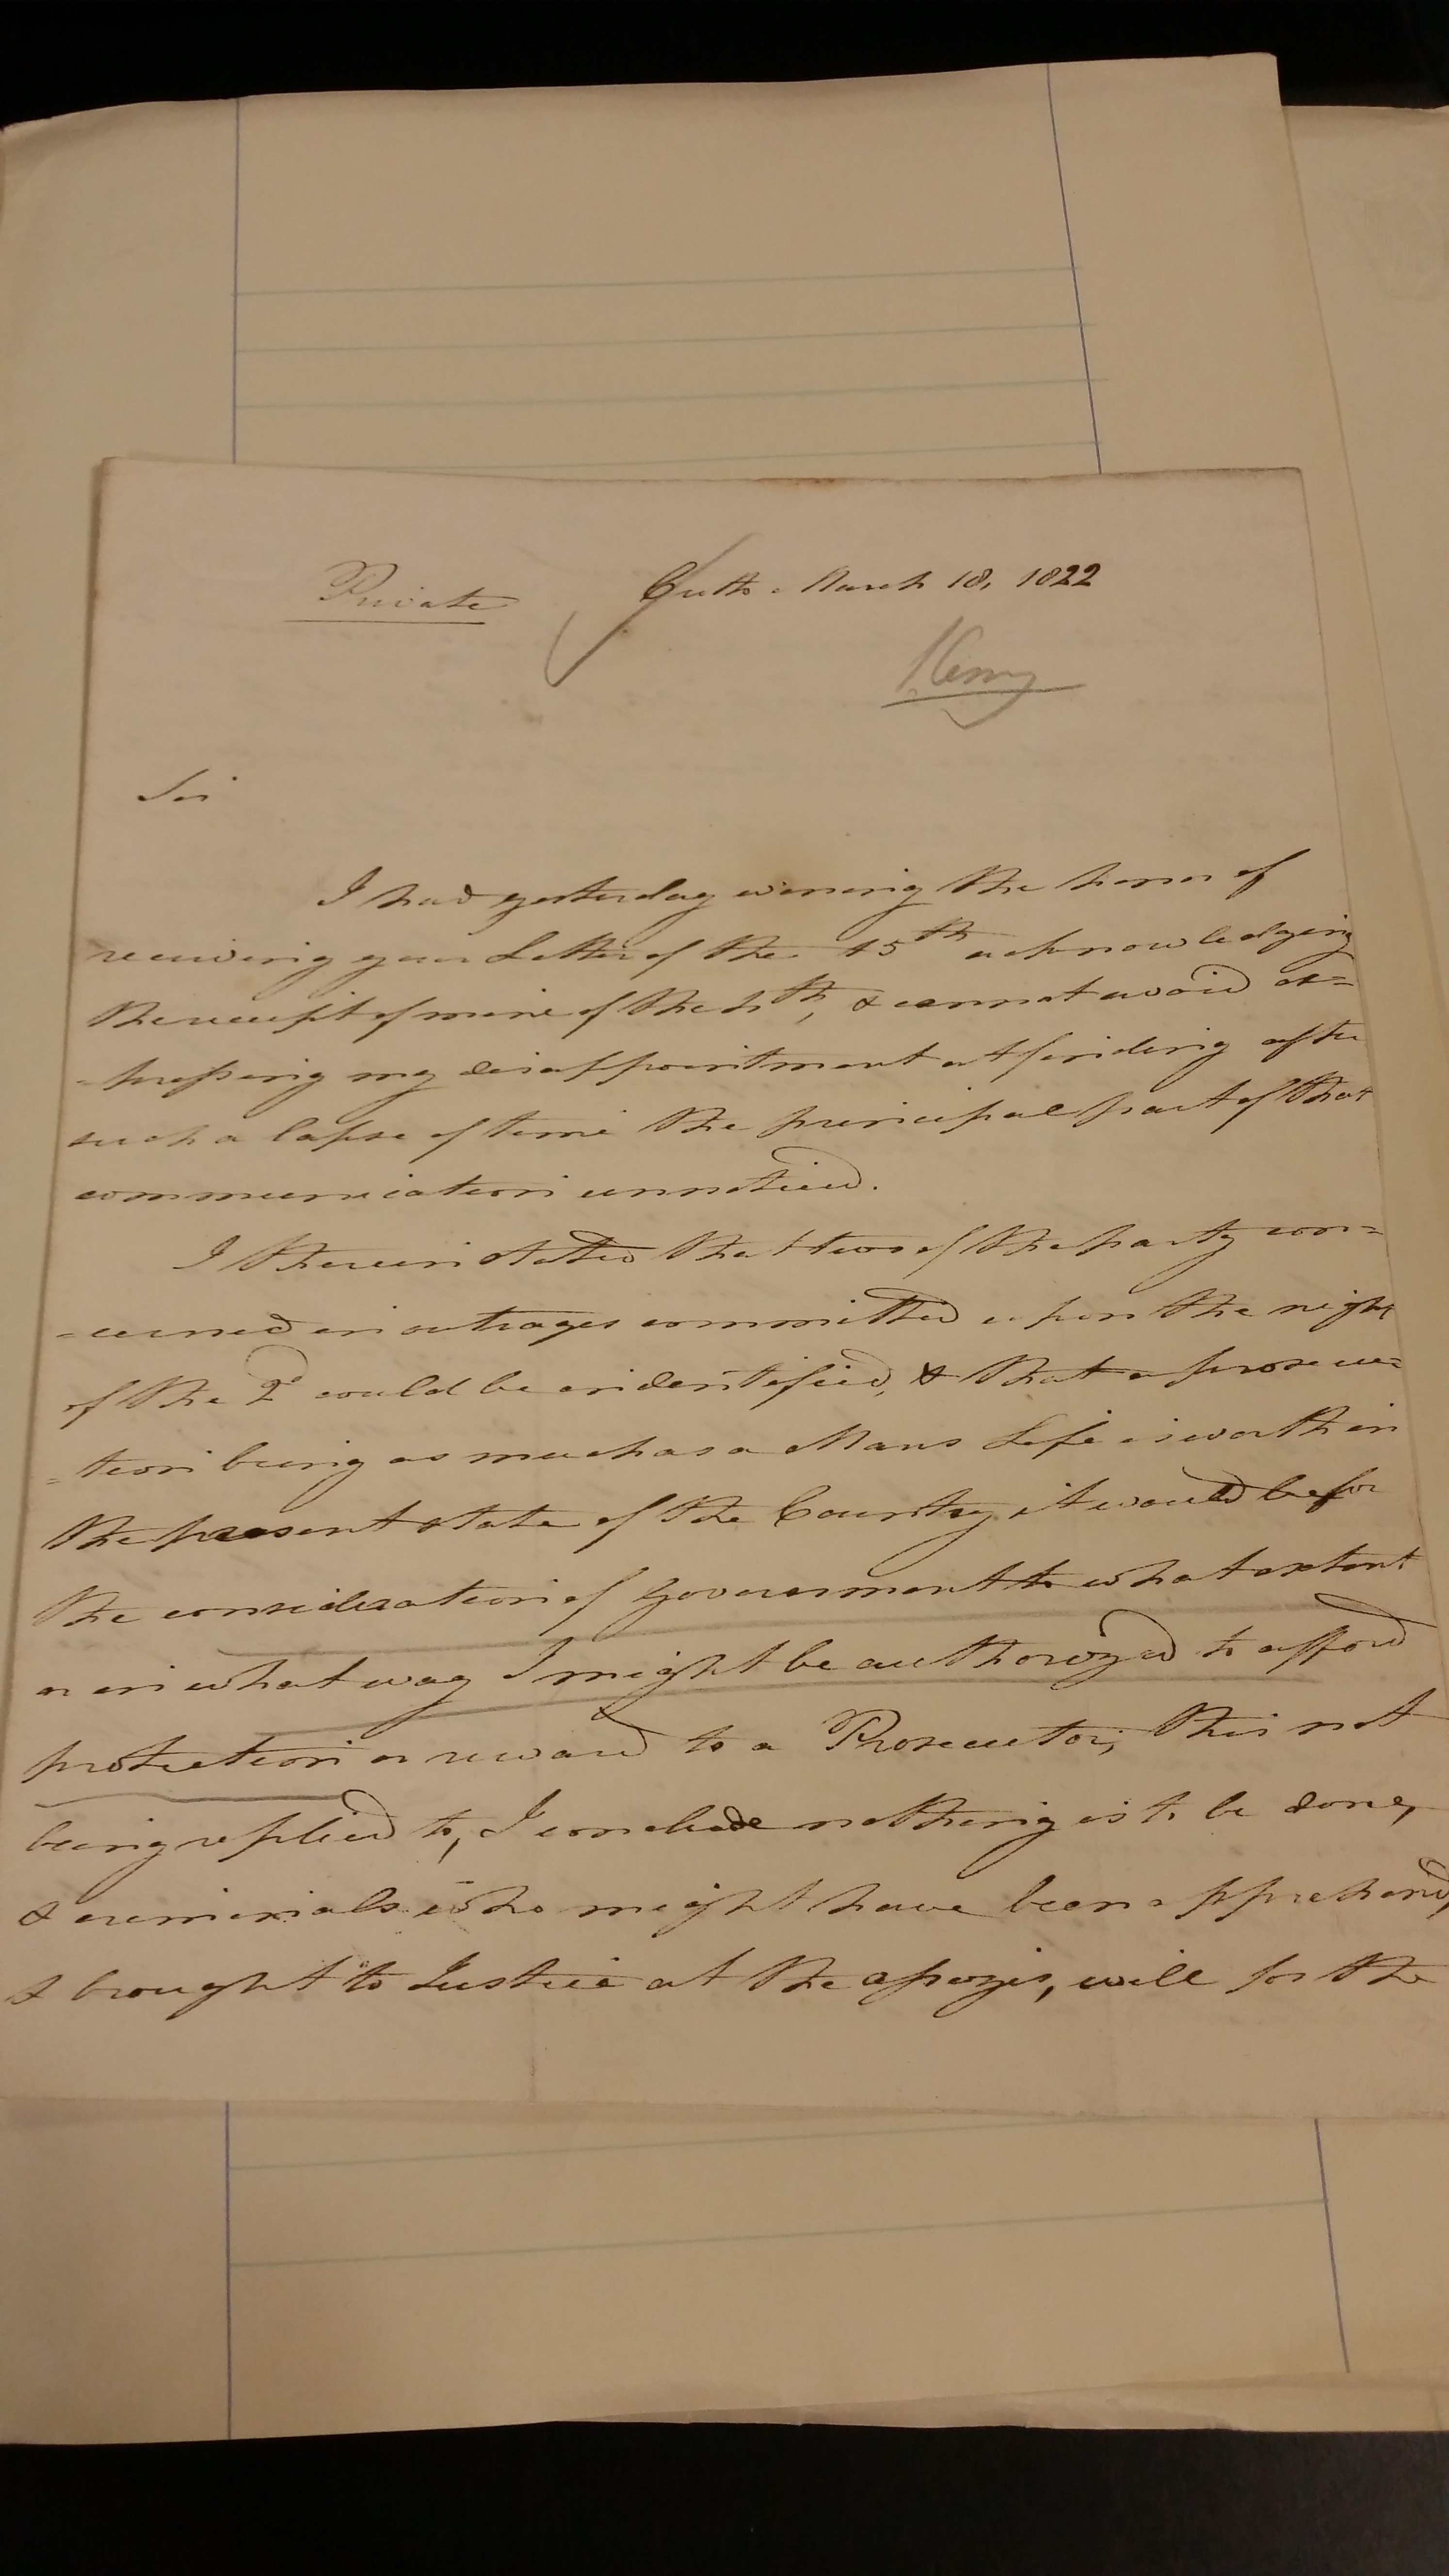 Private
March 18, 1822
Kerry
Sir
I had yesterday evening the honor of
receiving your Letter of the 15th acknowledging
the receipt of mine of the , & cannot avoid ex=
=pressing my disappointment at finding after
such a lapse of time the principal part of that
communication unnoticed.
I therein stated that two of the party con=
=cerned in outrages committed upon the night
of the 2d could be identified, & that a prosecu=
=tion being as much as a Mans Life is worth in
the present state of the Country, it would be for
the consideration of Government to what extent
or in what way I might be authorized to afford
protection or reward to a Prosecutor; this not
being replied to, I conclude nothing is to be done,
& criminals who might have been apprehend,
& brought to Justice at the apizes, will for the